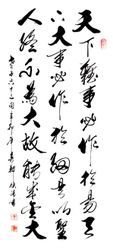 天下難事必作於易天
下大事必作於細是以聖
人終不為大故能成其大